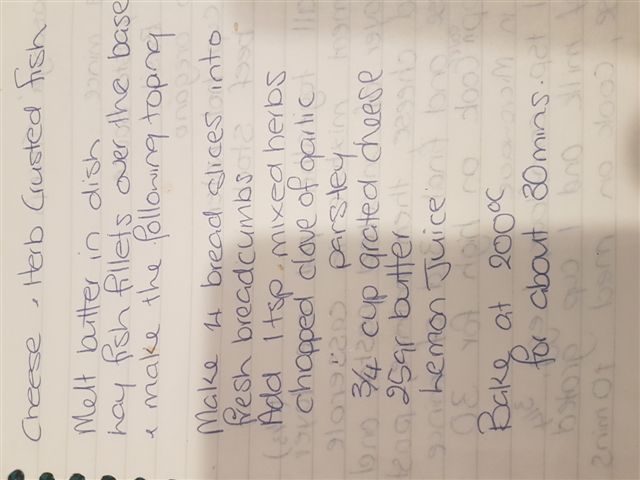 Cheese & Herb Crusted Fish
Melt butter in dish
Lay fish fillets over the base
& make the following toping
Make 4 bread slices into
fresh breadcumbs
Add 1 tsp mixed herbs
chopped clove of garlic
parsley
3/4 cup grated cheese
25gr butter
Lemon Juice
Bake at 200°C
for about 30mins.